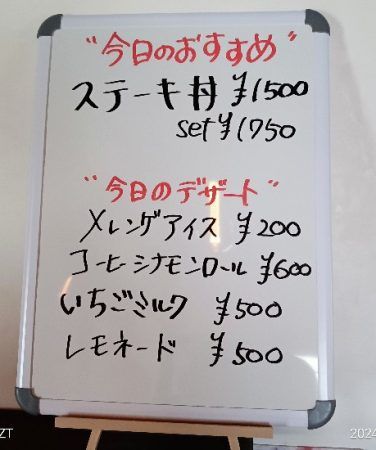 "今日のおすすめ"
ステーキ丼 ¥1500
set ¥1750
"今日のデザート"
メレンゲアイス ¥200
コーヒーシナモンロール ¥600
いちごミルク ¥500
レモネード ¥500
ZT 2024